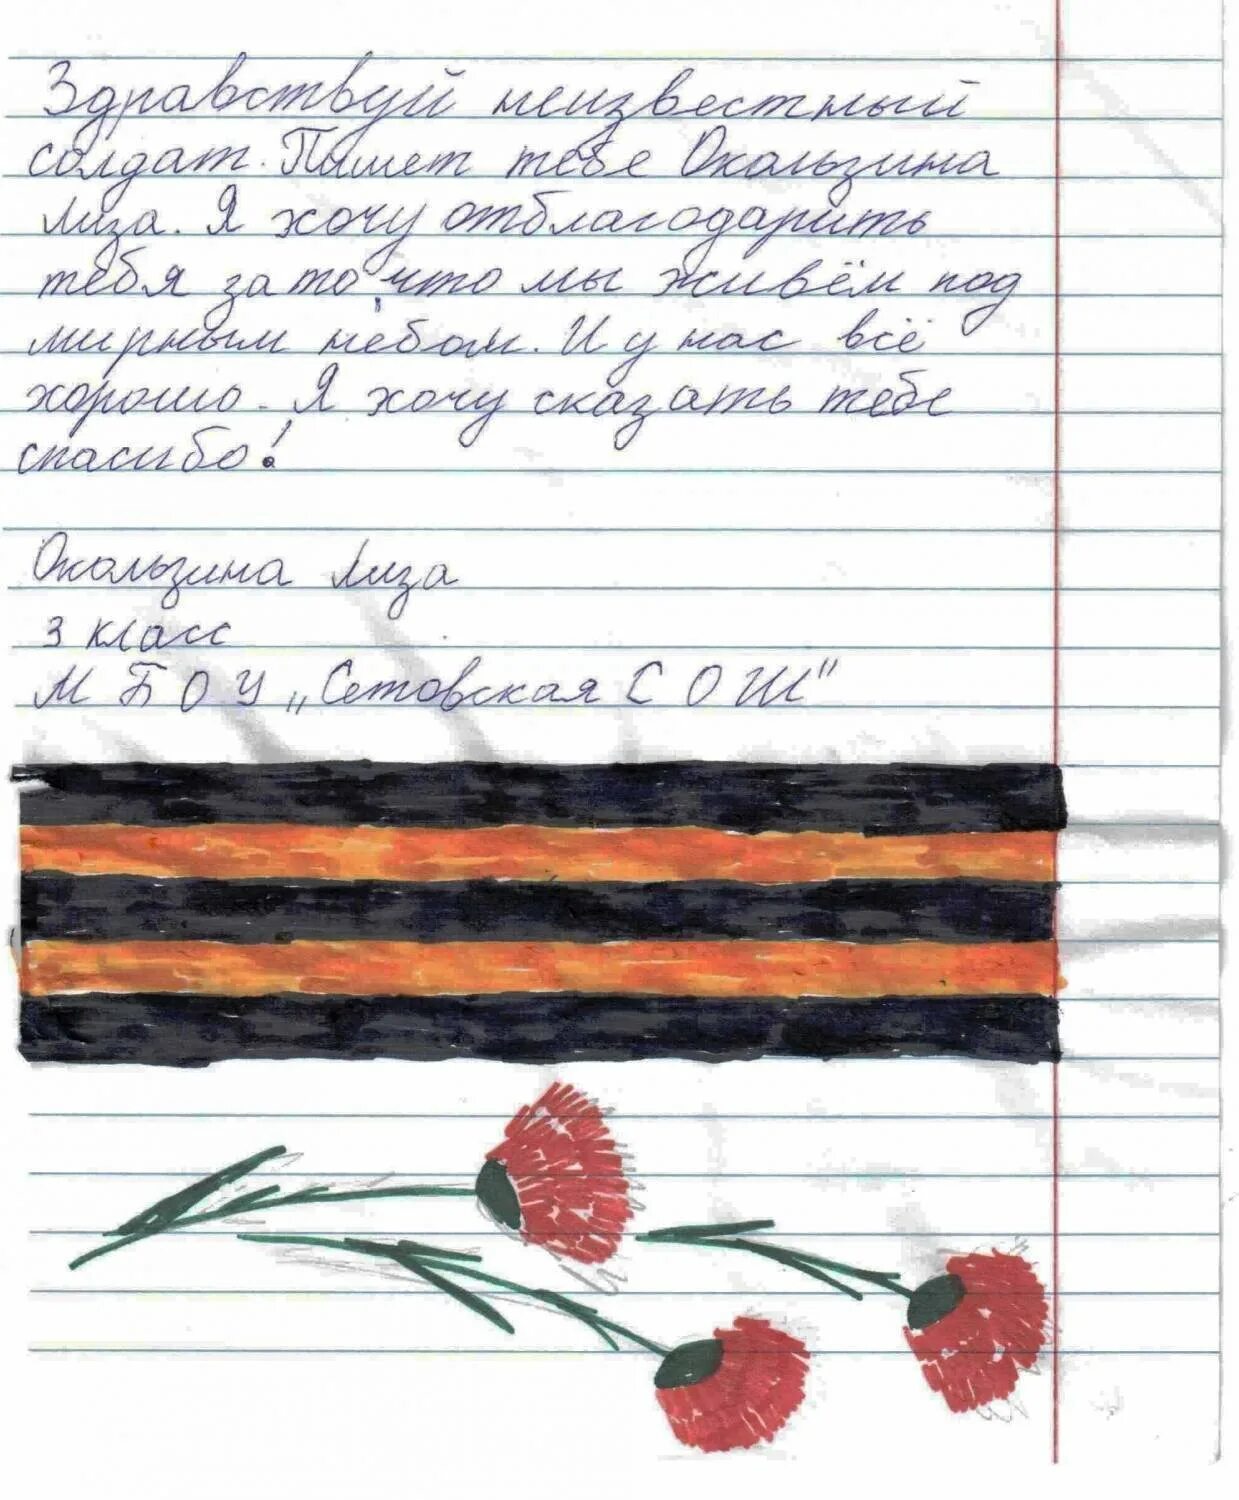 Здравствуй неизвестный
солдат. Пишет тебе Окользина
Лиза. Я хочу отблагодарить
тебя за то, что мы живём под
мирным небом. И у нас всё
хорошо. Я хочу сказать тебе
спасибо!
Окользина Лиза
3 класс
М Б О У „Сетовская С О Ш"